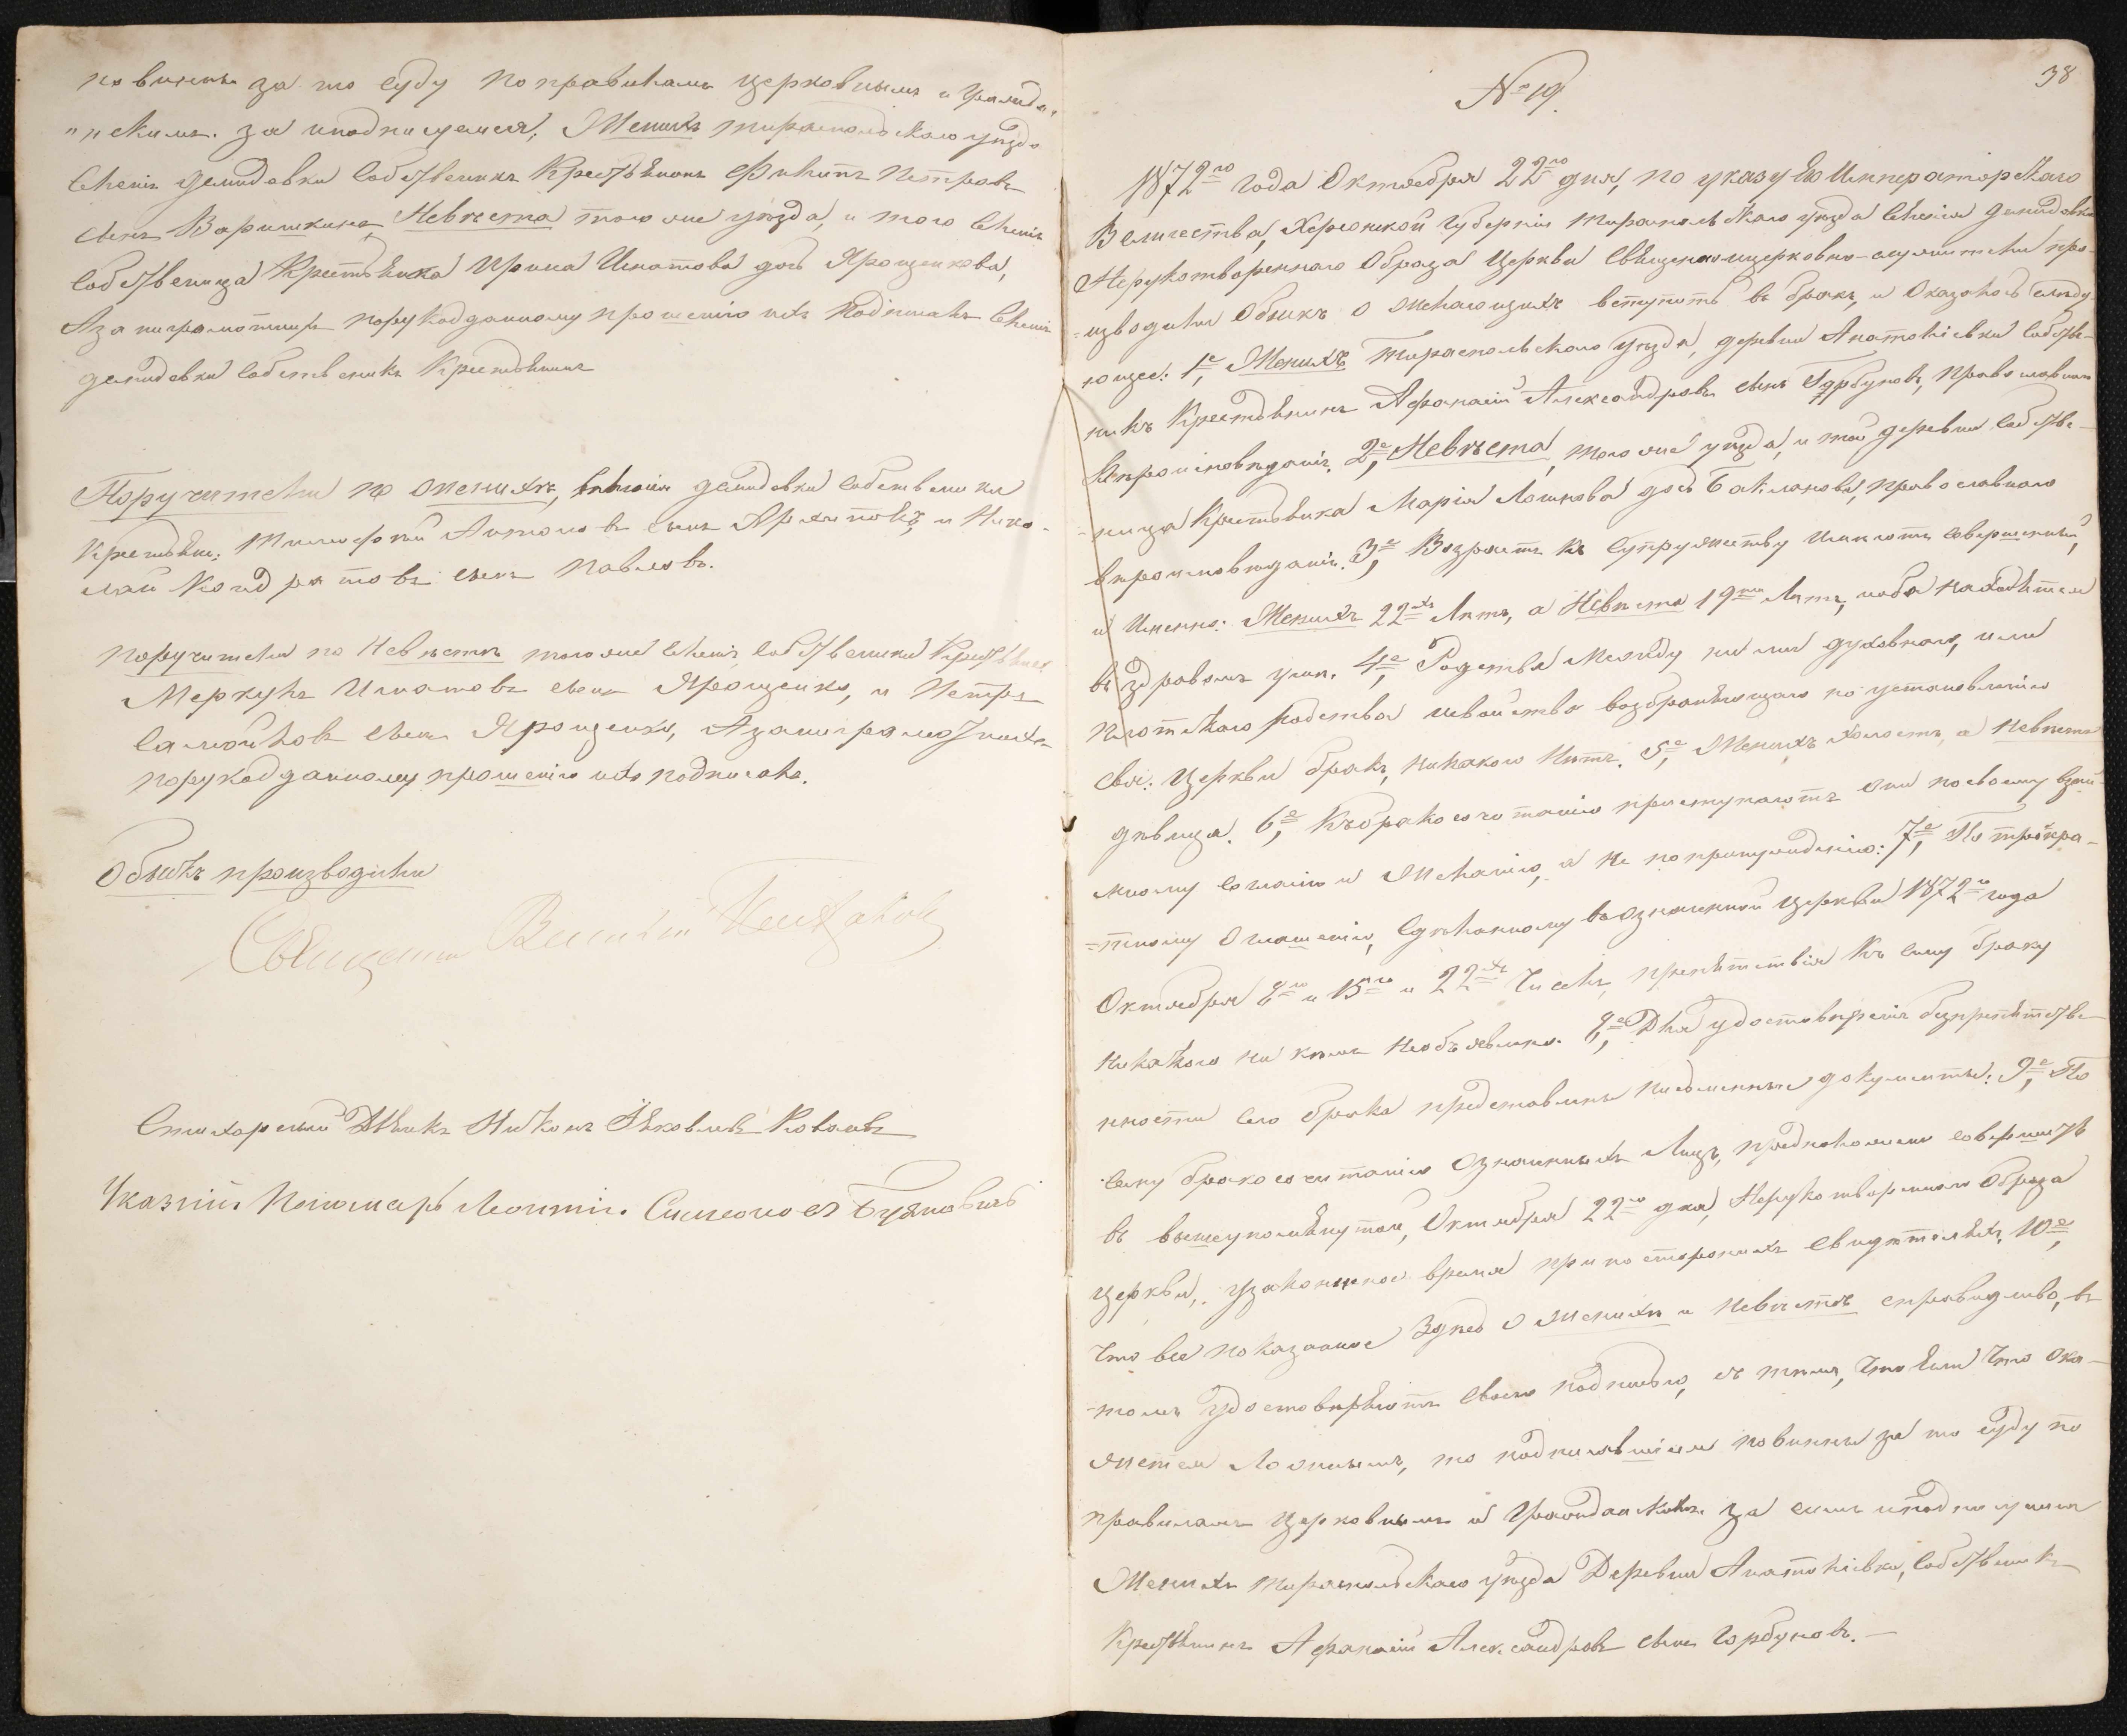 повинны за то суду по правиламъ церковнымъ и гражда„
„нскимъ. за и подписуемся, Женихъ тираспольскаго уѣзда
селенія Демидовки собственикъ Крестьянинъ Филипъ Петровъ
сынъ Варишкинъ, Невѣста того же уѣзда, и того селенія
собственица Крестьянка Ирина Игнатова дочь Ярощенкова,
А за неграмотныхъ порукоданному прошенію ихъ подписалъ селенія
демидовки собственикъ Крестьянинъ
Поручители по женихѣ, селенія демидовки собственики
Крестьяне: Тимофей Антоновъ сынъ Архиповъ, и Нико-
лай Кондратовъ сынъ Павловъ.
Поручители по Невѣстѣ того же селенія, собственики Крестьяне
Меркулъ Игнатовъ сынъ Ярощенко, и Петръ
Самойловъ сынъ Ярощенко, А за неграмотныхъ
порукоданному прошенію ихъ подписалъ.
Обыскъ производили
Священникъ Василій
Стихарный Дьякъ Никонъ Яковлевъ Ковалевъ
Указный Пономарь Леонтій Симеоновъ Буяновичъ
38
№ 19
1872го года Октября 22го дня, по указу Его Императорскаго
Величества, Херсонской губерніи тираспольскаго уѣзда селенія Демидовки
Нерукотвореннаго Образа Церкви Священноицерковно-служители про-
=изводили Обыскъ о желающихъ вступить въ бракъ, и Оказалось слѣду-
ющее: 1е, Женихъ Тираспольскаго Уѣзда, деревни Анатоліевки собстве-
никъ Крестьянинъ Афанасій Александровъ сынъ Горбуновъ, православнаго
вѣроисповѣданія. 2е, Невѣста, того же уѣзда, и той деревни собстве-
=ница Крестьянка Марія Логинова дочь Бакланова, православнаго
вѣроисповѣданія. 3е, Возрастъ къ Супружеству имѣютъ совершенный,
и Именно: Женихъ 22хъ Лѣтъ, а Невѣста 19ти Лѣтъ, и оба находятся
въ здравомъ умѣ. 4е, Родства Между ними духовнаго, или
плотскаго родства и свойства возбраняющаго по установленію
Свя: Церкви бракъ, никакого Нѣтъ. 5е, Женихъ холостъ, а Невѣста
дѣвица. 6е, Къ бракосочетанію приступаютъ они по своему взаи-
мному согласію и Желанію, а не по принужденію: 7е, По троекра-
=тному Оглашенію, сдѣланному въ означенной церкви 1872го года
Октября 8го и 15го и 22хъ Чиселъ, препятствія Къ сему браку
никакого ни кѣмъ необъявлено. 8,е Для удостовѣренія безпрепятстве-
нности сего брака представлены письменные документы: 9,е По
сему бракосочитанію Означенныхъ Лицъ, предположено совершить
въ вышеупомянутой, Октября 22го дня, Нерукотвореннаго Образа
церкви, узаконенное время при постороннихъ свидѣтеляхъ. 10е,
Что все показанное здѣсь о женихѣ и невѣстѣ справидливо, въ
=томъ удостовѣряютъ своею подписью, съ тѣмъ, Что Если Что Ока-
жется Ложнымъ, то подписавшіеся повинны за то суду по
правиламъ церковнымъ и Гражданскимъ. за симъ и подписуемся
Женихъ тираспольскаго уѣзда Деревни Анатоліевки, собственикъ
Крестьянинъ Афанасій Александровъ сынъ Горбуновъ.—